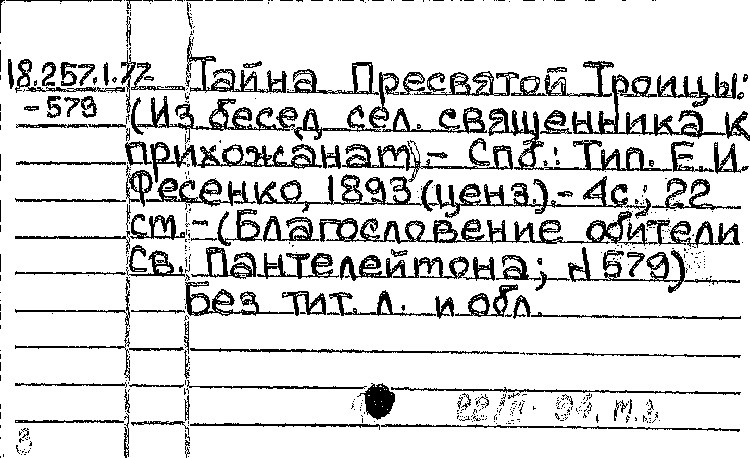 18.257.1.77 Тайна Пресвятой Троицы:
-579 (Из бесед сел. священника к
прихожанат).- Спб.: Тип. Е.И.
Фесенко, 1893 (ценз.).- 4с.; 22
ст.-(Благословение обители
Св. Пантелеймона; N 579)
Без тит. л. и обл.
22/II- 94. м.з
3